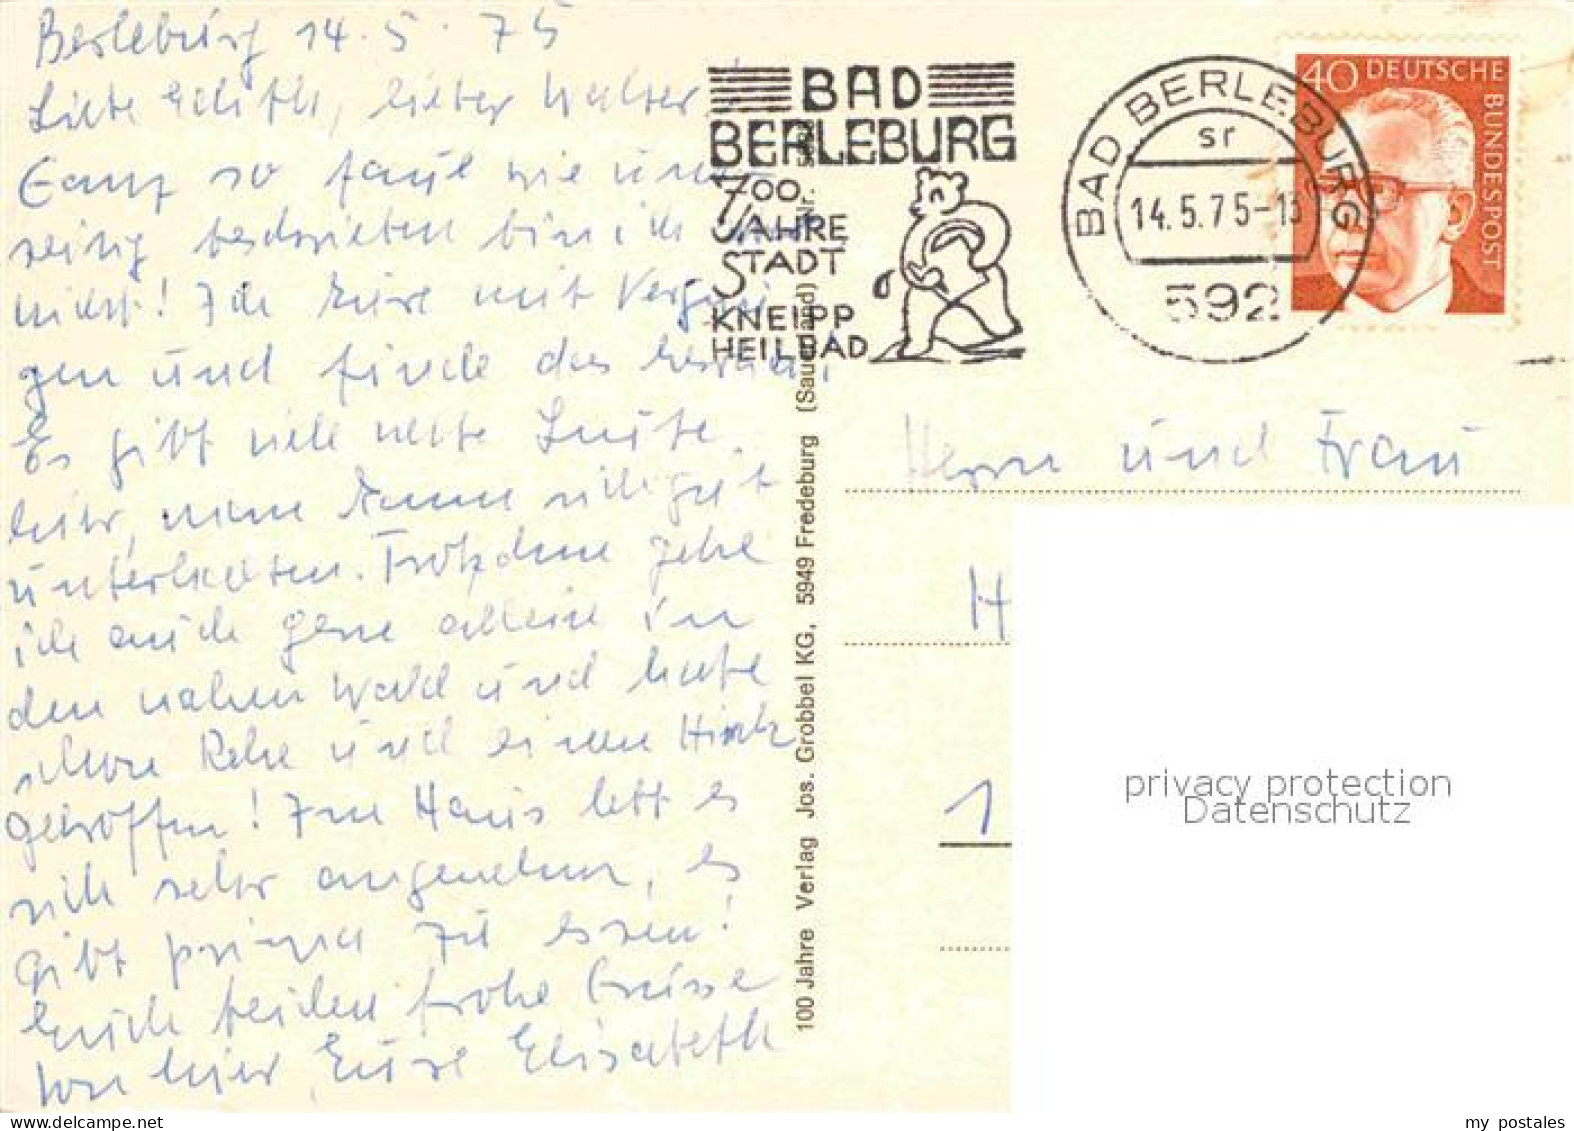 Berleburg 14.5.75
Liebe Edith, lieber Walter!
Ganz so faul wie
bin ich
nicht! Ich kure mit Vergnü-
gen und finde das
Es gibt viele nette Leute
hier, man kann sich gut
unterhalten. Trotzdem gehe
ich auch gerne allein in
den nahen Wald und habe
schon Rehe und einen Hirsch
getroffen! Im Haus lebt es
sich sehr angenehm, es
gibt prima zu essen!
Euch beiden frohe Grüsse
von hier, Eure Elisabeth
BAD
BERLEBURG
700
JAHRE
STADT
KNEIPP
HEILBAD
BAD BERLEBURG
sr
14.5.75-13
592
40 DEUTSCHE
BUNDESPOST
100 Jahre Verlag Jos. Grobbel KG, 5949 Fredeburg (Sauerland) Nr.
Herrn und Frau
H
1
privacy protection
Datenschutz
my postales